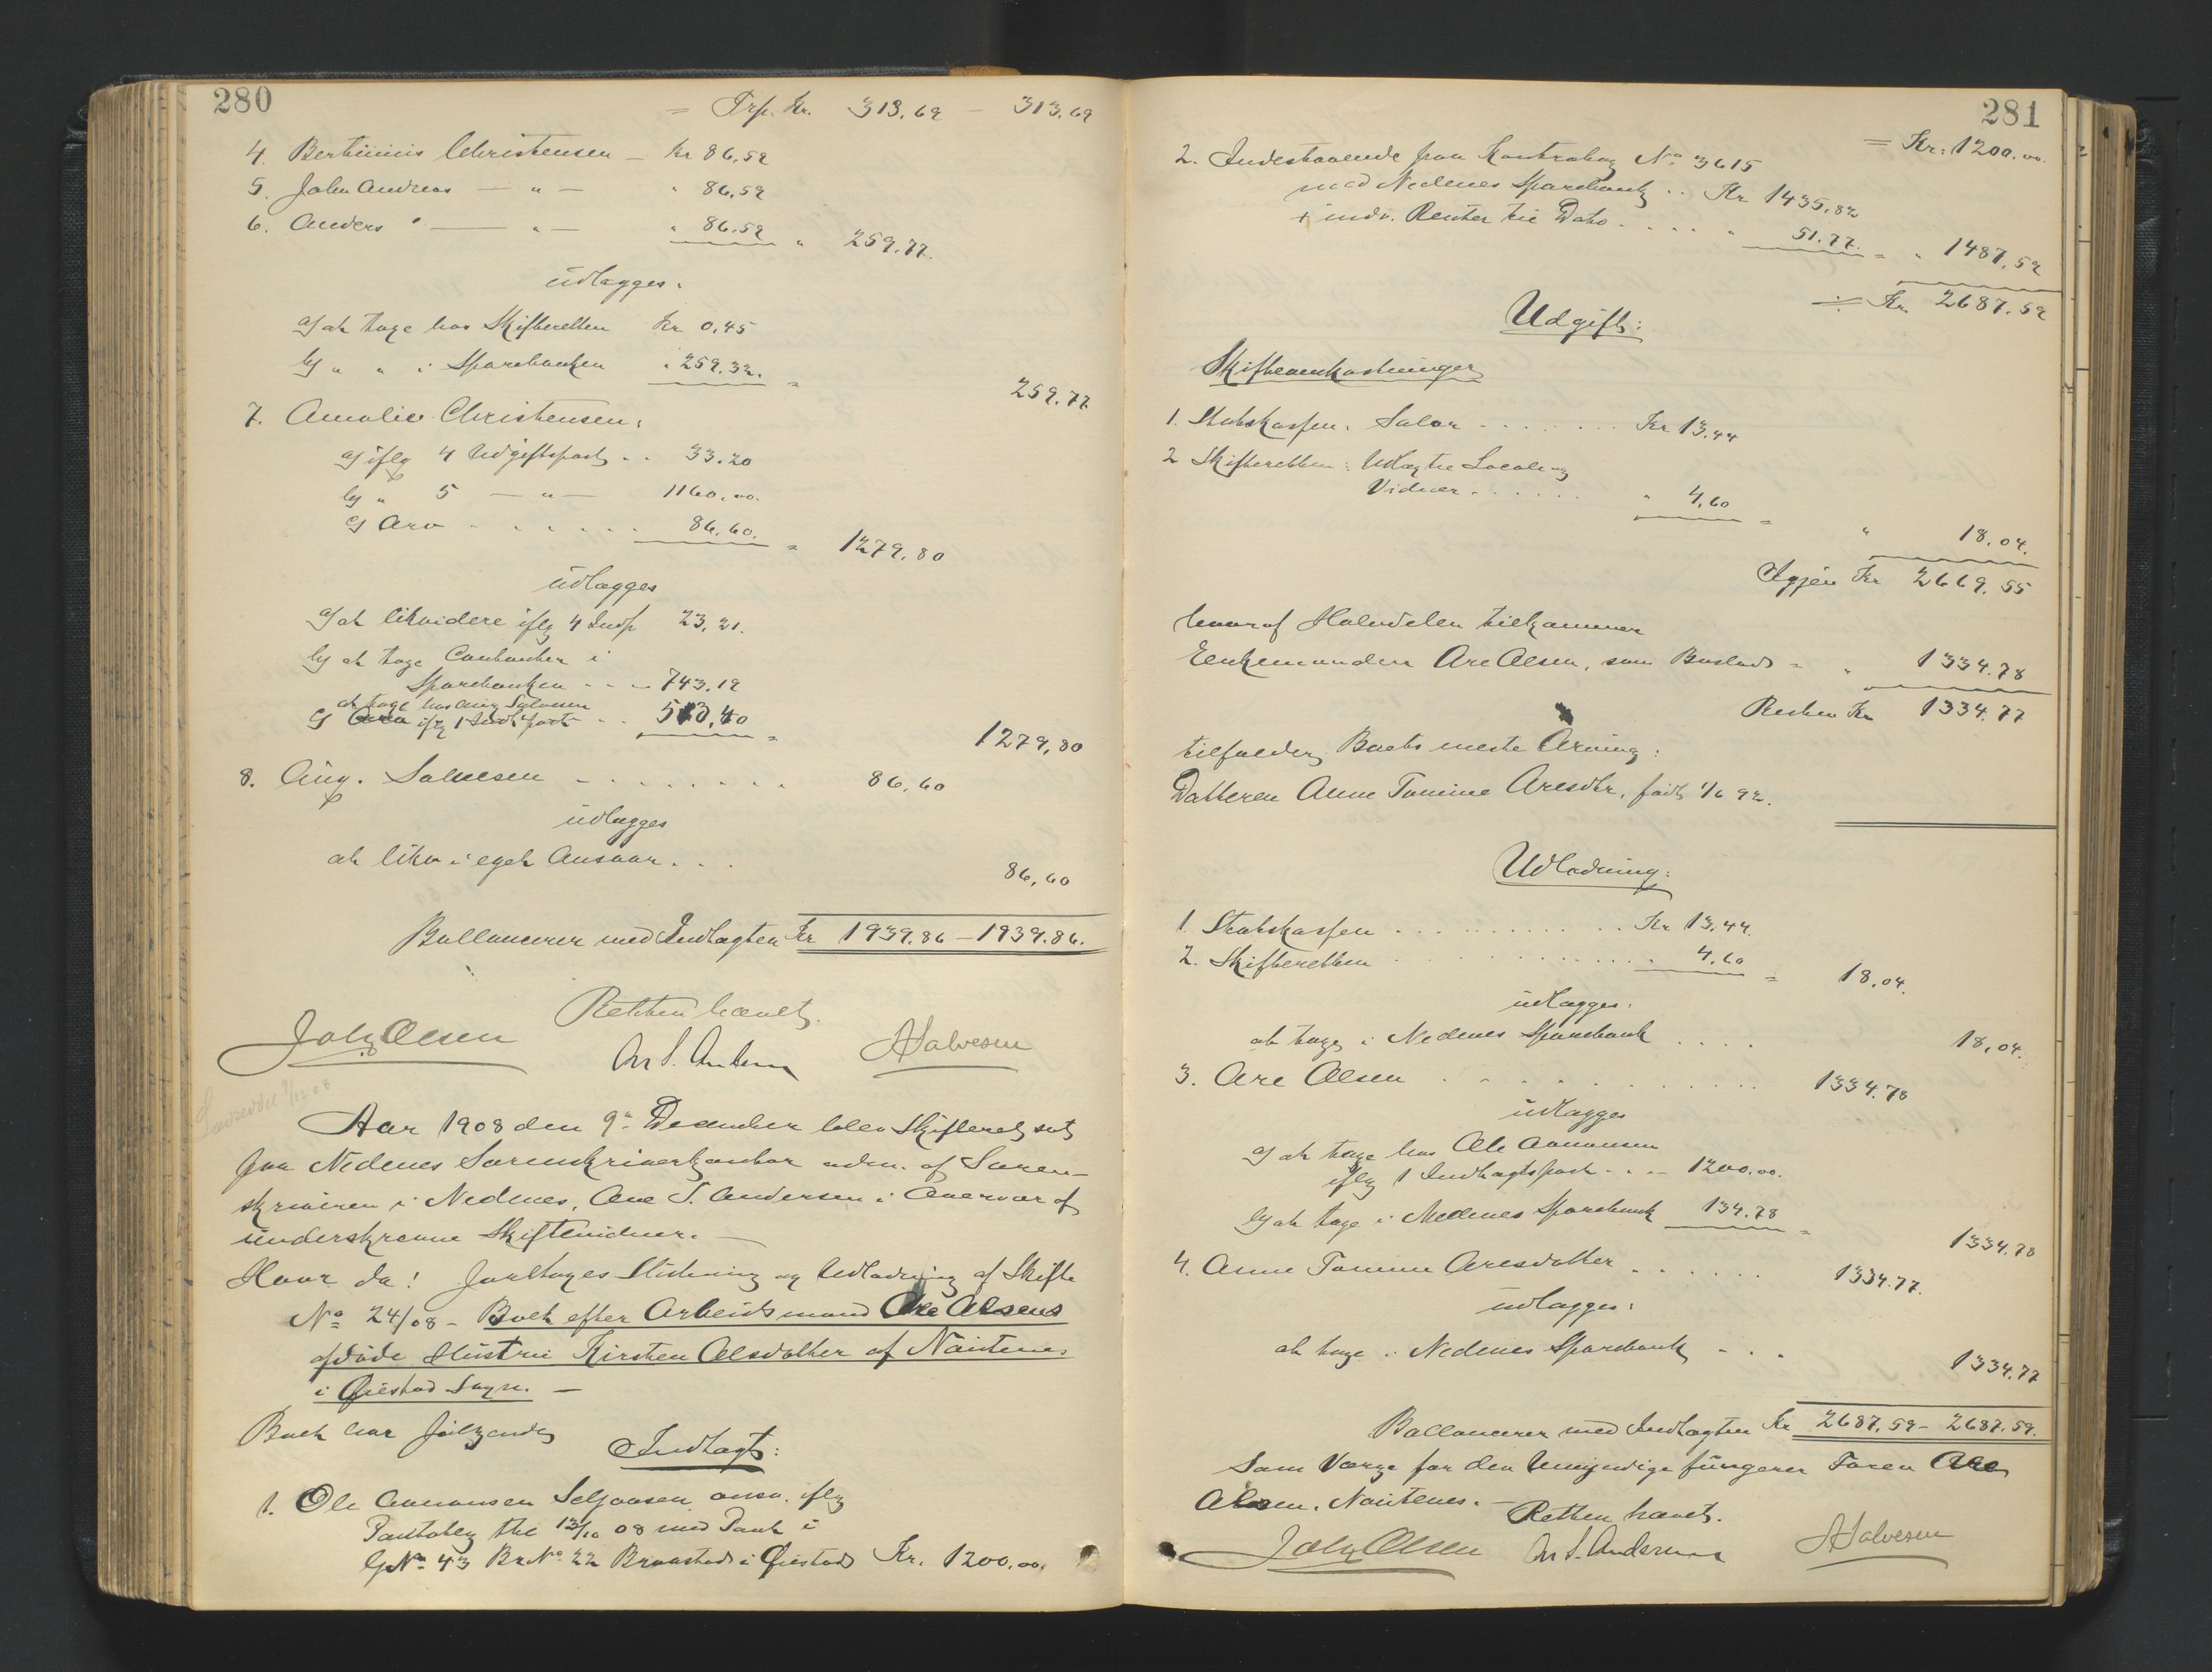 280
= Trp. Kr. 313,69 - 313,69
4. Bertinius Christensen - Kr 86,59
5. John Andreas - " - " 86,59
6. Anders " - " - " 86,59 " 259,77.
udlægges:
a) at tage hos Skifteretten Kr 0,45
b) " " i Sparebanken " 259.32. = 259.77
7. Amalie Christensen:
a) iflg 4 Udgiftspost .. 33.20
b) " 5 - " - 1160,00.
c) Arv . . . . . . 86,60. = 1279.80
udlægges
a) at likvidere iflg 4 Indt 23,21.
b) at tage Contanter i
Sparebanken - - - 743.19
at tage hos Aug Salvesen
c) iflg 1 Indt post - . . 513,40 = 1279,80
8. Aug. Salvesen - . . . . . . . 86,60
udlægges
at likv i eget Ansvar. . . 86,60
Ballancerer med Indtægten Kr 1939.86 - 1939.86.
Retten hævet.
Joh. Olsen Ar S. Andersen ASalvesen
9/12 08
Aar 1908 den 9de December blev Skifteret sat
paa Nedenes Sorenskriverkontor adm. af Soren-
skriveren i Nedenes, Are S. Andersen i Overvær af
underskrevne Skiftevidner. -
Hvor da! foretoges Slutning og Udlodning af Skifte
No 24/08 - Boet efter Arbeidsmand Are Olsens
afdøde Hustru Kirsten Olsdatter af Nautenes
i Øiestad Sogn. -
Boet har følgende
Indtægt:
1. Ole Aanonsen Seljaasen ansv. iflg
Pantobl thl 13/10 08 med Pant i
GNo 43 BrNo 22 Braastad i Øiestad Kr. 1200.00.
281
= Kr: 1200.00.
2. Indestaaende paa Kontrabog No 3615
med Nedenes Sparebank .. Kr 1435,82
+ indv. Renter til Dato . . . . . " 51.77. = " 1487,59
÷ Kr. 2687.59
Udgift:
Skifteomkostninger
1. Statskassen. Salær - . . . . . . Kr 13.44
2 Skifteretten: Udlægte Locale og
Vidner. . . . . . " 4,60 = " 18.04.
Igjen Kr 2669.55
hvoraf Halvdelen tilkommer
Enkemanden Are Olsen, som Boslod = " 1334.78
Resten Kr 1334.77
tilfalder Boets eneste Arving:
Datteren Anne Tomine Aresdtr, født 1/6 92.
Udlodning:
1. Statskassen . . . . . . . . . . . Kr 13.44.
2. Skifteretten . . . . . . . . . . . " 4.60 = 18.04.
udlægges:
at tage i Nedenes Sparebank . . . . 18,04.
3. Are Olsen . . . . . . . . . . . . 1334.78
udlægges
a) at tage hos Ole Aanonsen
iflg 1 Indtægtspost - . . - 1200.00.
b) at tage i Nedenes Sparebank 134.78 = 1334.78
4. Anne Tomine Aresdatter . . . . . . 1334.77.
udlægges:
at tage i Nedenes Sparebank - . . 1334.77
Ballancerer med Indtægten Kr 2687.59 - 2687.59.
Som Værge for den Umyndige fungerer Faren Are
Olsen, Nautenes. -
Retten hævet.
Joh. Olsen Ar S. Andersen ASalvesen